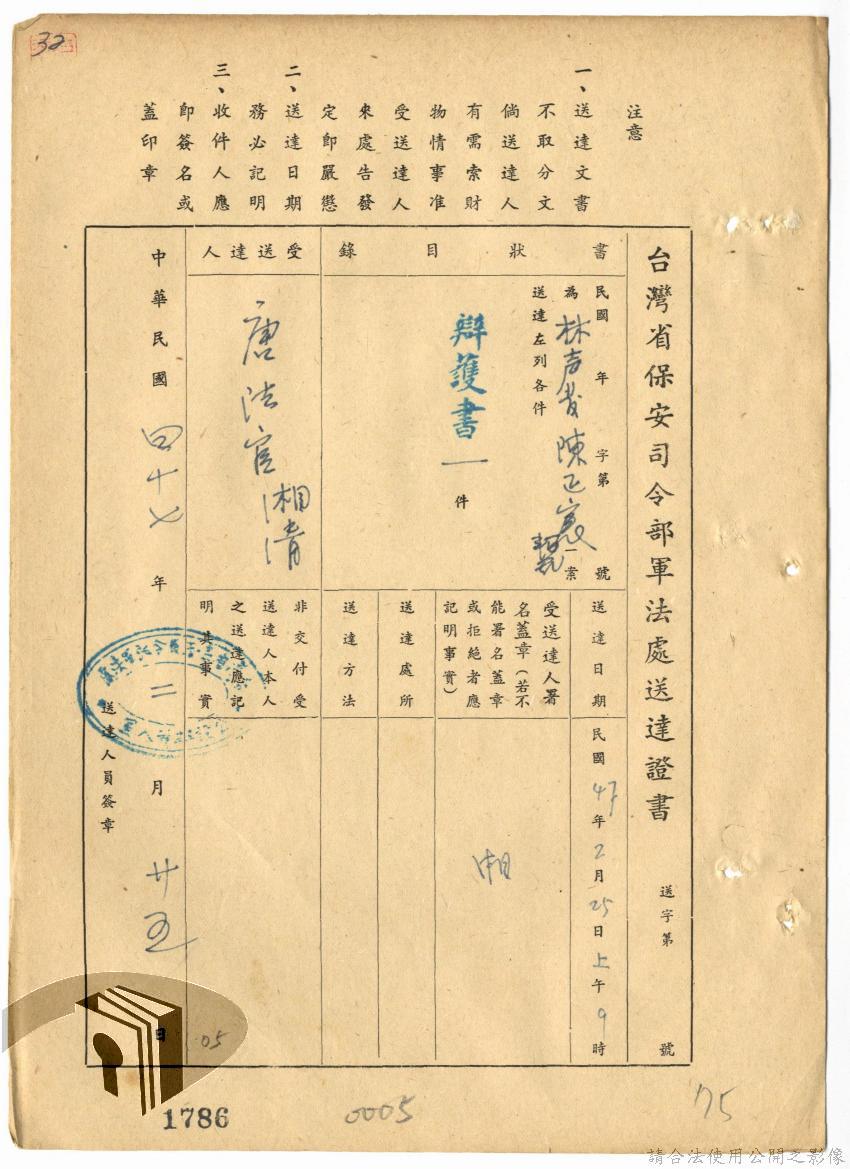 32
注意
一、送達文書
不取分文
倘送達人
有需索財
物情事准
受送達人
來處告發
定即嚴懲
二、送達日期
務必記明
三、收件人應
即簽名或
蓋印章
台灣省保安司令部軍法處送達證書
送字第 號
書狀目錄
民國 年 字第 號
為林声發陳正宸 一案
送達左列各件
辯護書一件
受送達人
唐法官湘清
送達日期
民國47年2月25日上午9時
受送達人署
名蓋章(若不
能署名蓋章
或拒絕者應
記明事實)
湘
送達處所
送達方法
非交付受
送達人本人
之送達應記
明其事實
中華民國四十七年二月廿五日
送達人員簽章
05
1786
0005
75
請合法使用公開之影像